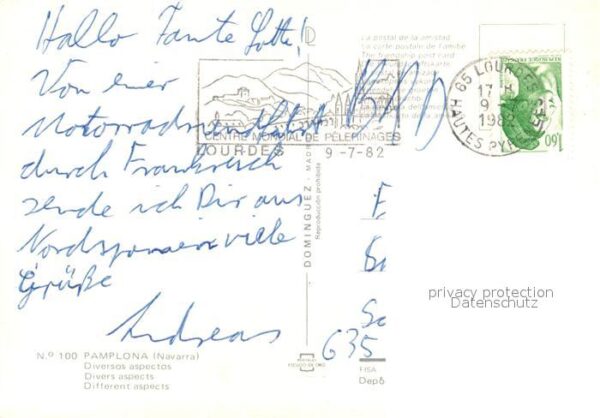 Hallo Tante Lotte!
Von einer
Motorradrundfahrt
durch Frankreich
sende ich Dir aus
Nordspanien viele
Grüße
Andreas
Nº 100 PAMPLONA (Navarra)
Diversos aspectos
Divers aspects
Different aspects
La postal de la amistad
La carte postale de l'amitié
The friendship post card
CENTRE MONDIAL DE PÈLERINAGES
LOURDES 9-7-82
65 LOURDES
17 H
9
1982
HAUTES PYR
1,60
DOMINGUEZ - MADRID
Reproducción prohibida
BRD
635
FISA
Depó
privacy protection
Datenschutz